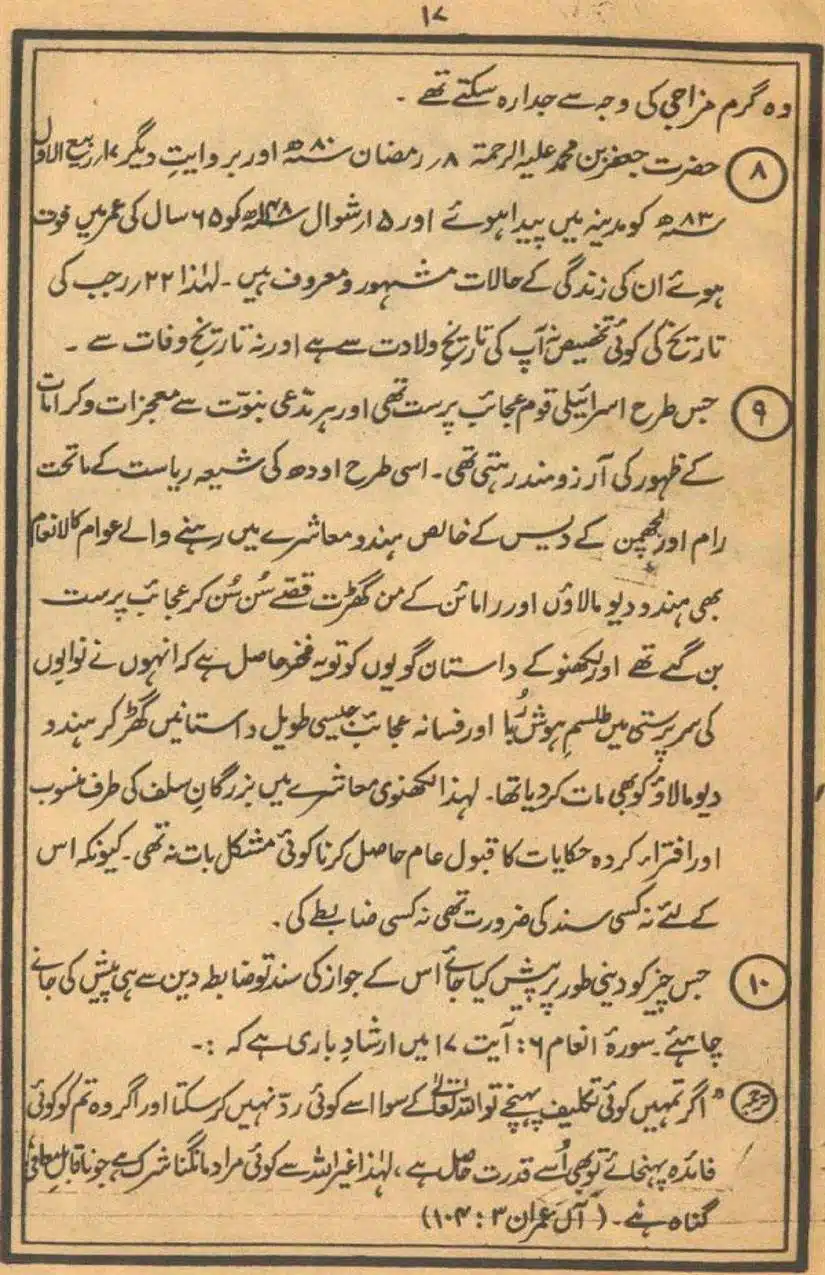 ۱۷
وہ گرم مزاجی کی وجہ سے جدا رہ سکتے تھے ۔
۸ حضرت جعفر بن محمد علیہ الرحمۃ ۸؍ رمضان ۸۰ھ اور بروایتِ دیگر ۱۷؍ ربیع الاول
۸۳ھ کو مدینہ میں پیدا ہوئے اور ۱۵ شوال ۱۴۸ھ کو ۶۵ سال کی عمر میں فوت
ہوئے ان کی زندگی کے حالات مشہور و معروف ہیں ۔ لہٰذا ۲۲؍ رجب کی
تاریخ کی کوئی تخصیص نہ آپ کی تاریخِ ولادت سے ہے اور نہ تاریخِ وفات سے ۔
۹ جس طرح اسرائیلی قوم عجائب پرست تھی اور ہر مدعی نبوّت سے معجزات و کرامات
کے ظہور کی آرزومند رہتی تھی ۔ اسی طرح اودھ کی شیعہ ریاست کے ماتحت
رام اور لچھمن کے دیس کے خالص ہندو معاشرے میں رہنے والے عوام کالانعام
بھی ہندو دیو مالاؤں اور رامائن کے من گھڑت قصّے سُن سُن کر عجائب پرست
بن گئے تھے اور لکھنو کے داستان گویوں کو تو یہ فخر حاصل ہے کہ انہوں نے نوابوں
کی سرپرستی میں طلسمِ ہوش رُبا اور فسانہ عجائب جیسی طویل داستانیں گھڑ کر ہندو
دیو مالاؤ کو بھی مات کر دیا تھا۔ لہذا لکھنوی معاشرے میں بزرگانِ سلف کی طرف منسوب
اور افتراء کردہ حکایات کا قبول عام حاصل کرنا کوئی مشکل بات نہ تھی ۔ کیونکہ اس
کے لئے نہ کسی سند کی ضرورت تھی نہ کسی ضابطے کی ۔
۱۰ جس چیز کو دینی طور پر پیش کیا جائے اس کے جواز کی سند تو ضابطہ دین سے ہی پیش کی جانے
چاہئے ۔ سورۂ انعام ۶ : آیت ۱۷ میں ارشادِ باری ہے کہ :۔
ترجمہ " اگر تمہیں کوئی تکلیف پہنچے تو اللہ تعالیٰ کے سوا اسے کوئی ردّ نہیں کر سکتا اور اگر وہ تم کو کوئی
فائدہ پہنچائے تو بھی اُسے قدرت حاصل ہے ، لہٰذا غیر اللہ سے کوئی مراد مانگنا شرک ہے جو ناقابلِ معافی
گناہ ہے ۔ ( آل عمران ۳ : ۱۰۴ )